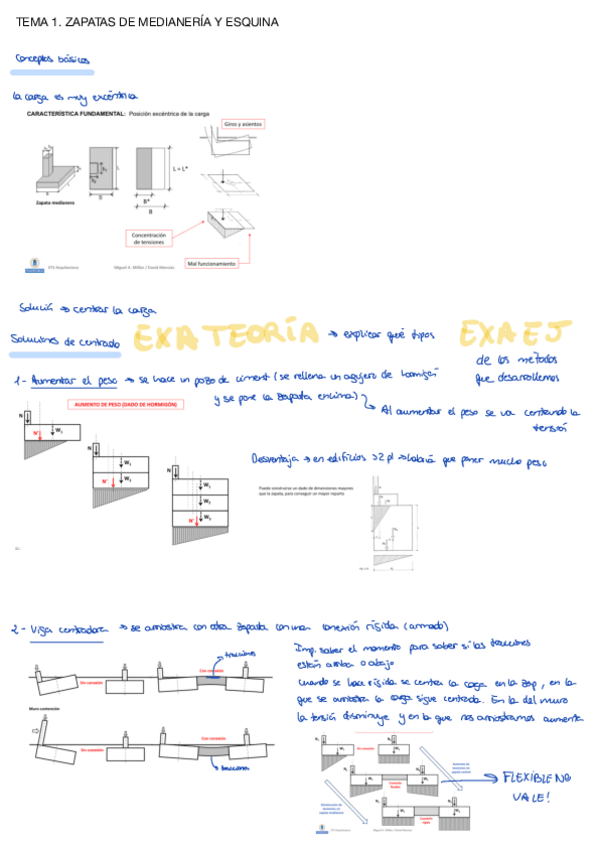 TEMA 1. ZAPATAS DE MEDIANERÍA Y ESQUINA
Conceptos básicos
La carga es muy excéntrica
CARACTERÍSTICA FUNDAMENTAL: Posición excéntrica de la carga
Giros y asientos
L = L*
B*
B
Zapata medianera
Concentración de tensiones
Mal funcionamiento
ETS Arquitectura
Solución → centrar la carga
Soluciones de centrado EXA TEORÍA → explicar qué tipos EXA EJ
de los métodos
que desarrollemos
1- Aumentar el peso → se hace un pozo de ciment (se rellena un agujero de hormigón
y se pone la zapata encima)
Al aumentar el peso se va centrando la
tensión
AUMENTO DE PESO (DADO DE HORMIGÓN)
N
N'
W₁
N
W₁
N'
W₂
N
W₁
W₂
N'
W₃
Desventaja → en edificios >2 pl → habría que poner mucho peso
Puede construirse un dado de dimensiones mayores
que la zapata, para conseguir un mayor reparto
2- Viga centradora → se arriostra con otra zapata con una conexión rígida (armado)
tracciones
Sin conexión
Con conexión
Muro contención
Sin conexión
Con conexión
tracciones
Imp. saber el momento para saber si las tracciones
están arriba o abajo
Cuando se hace rígida se centra la carga en la zap, en la
que se arriostra la carga sigue centrada. En la del muro
la tensión disminuye y en la que nos arriostramos aumenta
Sin conexión
Conexión flexible
Conexión rígida
→ FLEXIBLE NO
VALE!
ETS Arquitectura